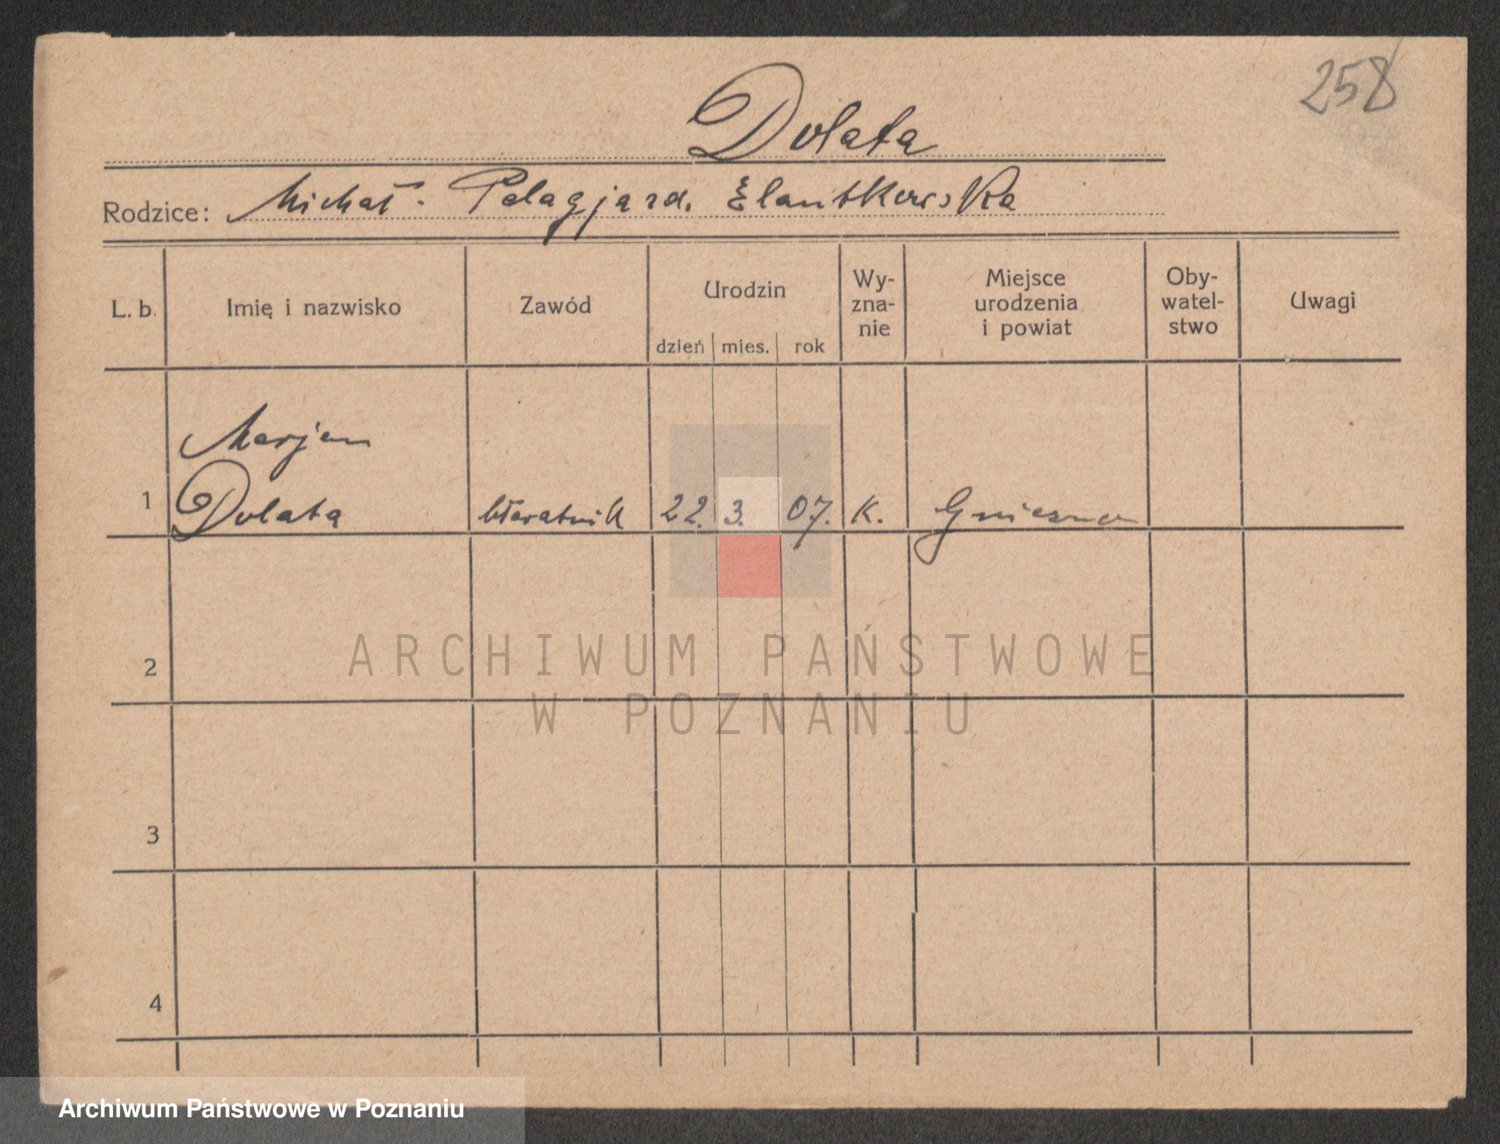 258
Dolata
Rodzice: Michał - Pelagja zd. Elantkowska
L. b. Imię i nazwisko Zawód Urodzin Wy-zna-nie Miejsce urodzenia i powiat Oby-watel-stwo Uwagi
dzień mies. rok
Marjan
1 Dolata 22. 3. 07. K. Gniezno
2
ARCHIWUM PAŃSTWOWE
W POZNANIU
3
4
Archiwum Państwowe w Poznaniu